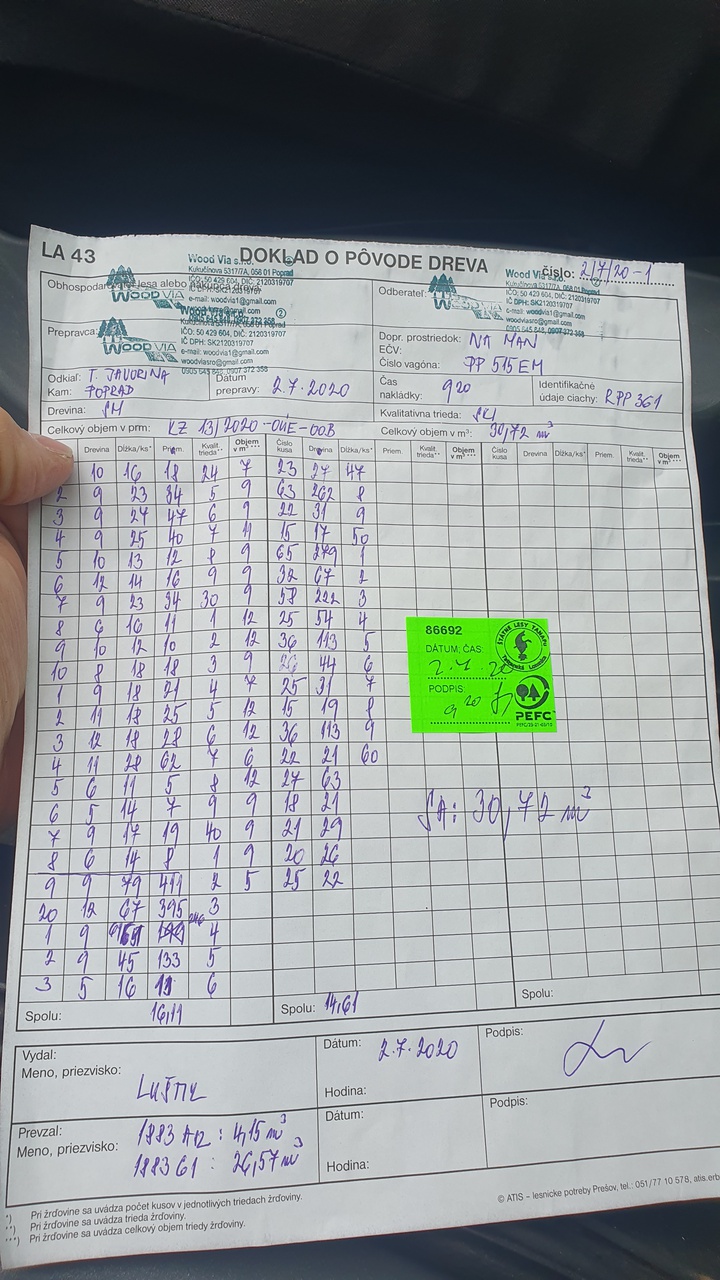 LA 43
DOKLAD O PÔVODE DREVA
číslo: 2/7/20-1
Wood Via s.r.o.
Kukučínova 5317/7A, 058 01 Poprad
IČO: 50 429 604, DIČ: 2120319707
IČ DPH: SK2120319707
e-mail: woodvia1@gmail.com
WOOD VIA
Odberateľ:
Prepravca:
WOOD VIA
Kukučínova 5317/7A, 058 01 Poprad
IČO: 50 429 604, DIČ: 2120319707
IČ DPH: SK2120319707
e-mail: woodvia1@gmail.com
woodviasro@gmail.com
0905 645 848, 0907 372 358
Dopr. prostriedok: NA MAN
EČV:
Číslo vagóna: PP 515EM
Odkiaľ: T. JAVORINA
Kam: POPRAD
Dátum prepravy: 2.7.2020
Čas nakládky: 9 20
Identifikačné údaje ciachy: RPP 361
Drevina: SM
Kvalitatívna trieda:
Celkový objem v prm: KZ 13/2020-OUE-OOB
Celkový objem v m³: 30,72 m³
Drevina Dĺžka/ks* Priem. Kvalit. trieda** Objem v m³*** Číslo kusa Drevina Dĺžka/ks* Priem. Kvalit. trieda** Objem v m³*** Číslo kusa Drevina Dĺžka/ks* Priem. Kvalit. trieda** Objem v m³***
10 16 18 24 7 23 27 47
2 9 23 34 5 9 63 262 8
3 9 27 47 6 9 22 31 9
4 9 25 40 7 11 15 17 50
5 10 13 12 8 9 65 279 1
6 12 14 16 9 9 32 67 2
7 9 23 34 30 9 58 222 3
8 6 16 11 1 12 25 54 4
9 10 12 10 2 12 36 113 5
10 8 18 18 3 9 26 44 6
1 9 18 21 4 7 25 31 7
2 11 18 25 5 12 15 19 8
3 12 18 28 6 12 36 113 9
4 11 28 62 7 6 22 21 60
5 6 11 5 8 12 27 63
6 5 14 7 9 9 18 21
7 9 17 19 40 9 21 29
8 6 14 8 1 9 20 26
9 9 79 411 2 5 25 22
20 12 67 395 3
1 9 246 4
2 9 45 133 5
3 5 16 11 6
86692
DÁTUM; ČAS:
2.7.20
PODPIS:
9 20
ŠTÁTNE LESY TANAPU
Tatranská Lomnica
PEFC
SA: 30,72 m³
Spolu: 16,11
Spolu: 14,61
Spolu:
Vydal:
Meno, priezvisko:
Dátum: 2.7.2020
Hodina:
Podpis:
Prevzal:
Meno, priezvisko:
1883 A12 : 4,15 m³
1883 G1 : 26,57 m³
Dátum:
Hodina:
Podpis:
*) Pri žrďovine sa uvádza počet kusov v jednotlivých triedach žrďoviny.
**) Pri žrďovine sa uvádza trieda žrďoviny.
***) Pri žrďovine sa uvádza celkový objem triedy žrďoviny.
© ATIS – lesnícke potreby Prešov, tel.: 051/77 10 578, atis.erb